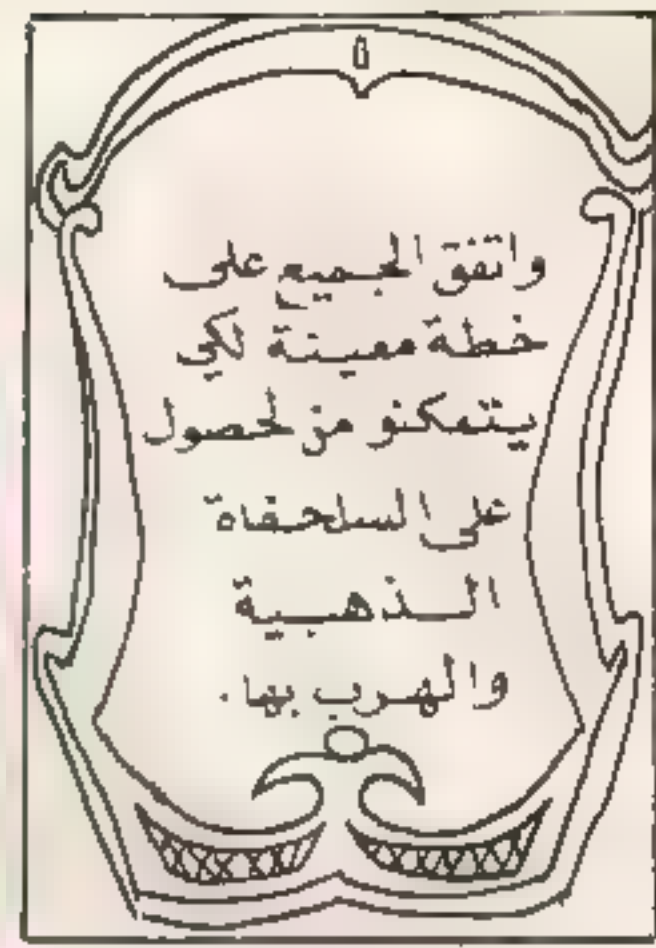 واتفق الجميع على
خطة معينة لكي
يتمكنو من لحصول
على السلحفاة
الذهبية
والهرب بها.